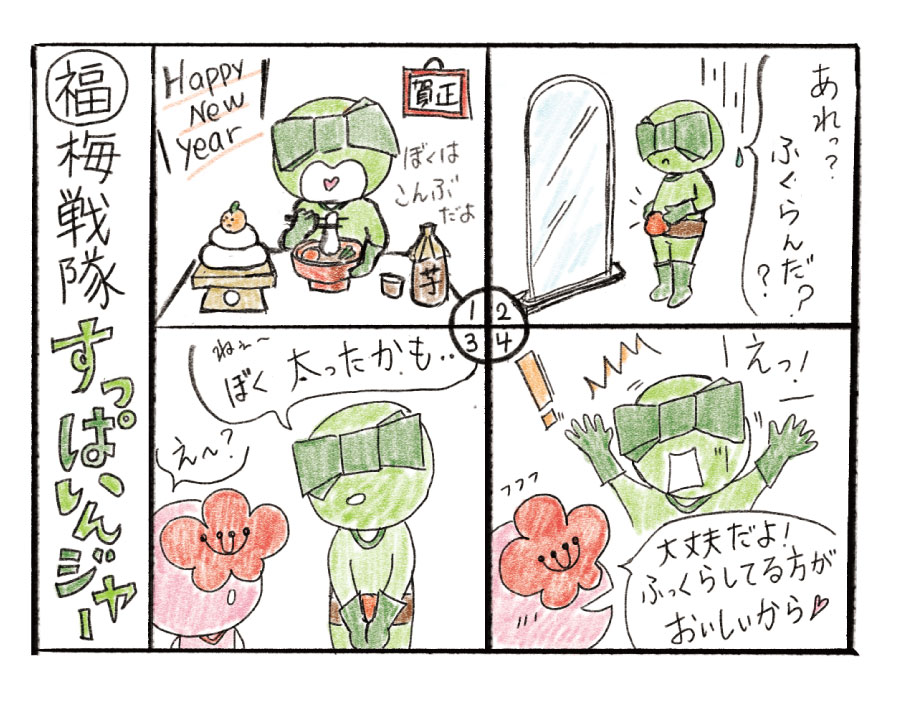 福
梅戦隊
すっぱいんジャー
Happy
New
Year
賀正
ぼくは
こんぶ
だよ
芋
1
2
あれっ?
ふくらんだ??
3
ねぇ〜
ぼく 太ったかも..
え〜?
4
えっ!
フフフ
大丈夫だよ!
ふっくらしてる方が
おいしいから♡